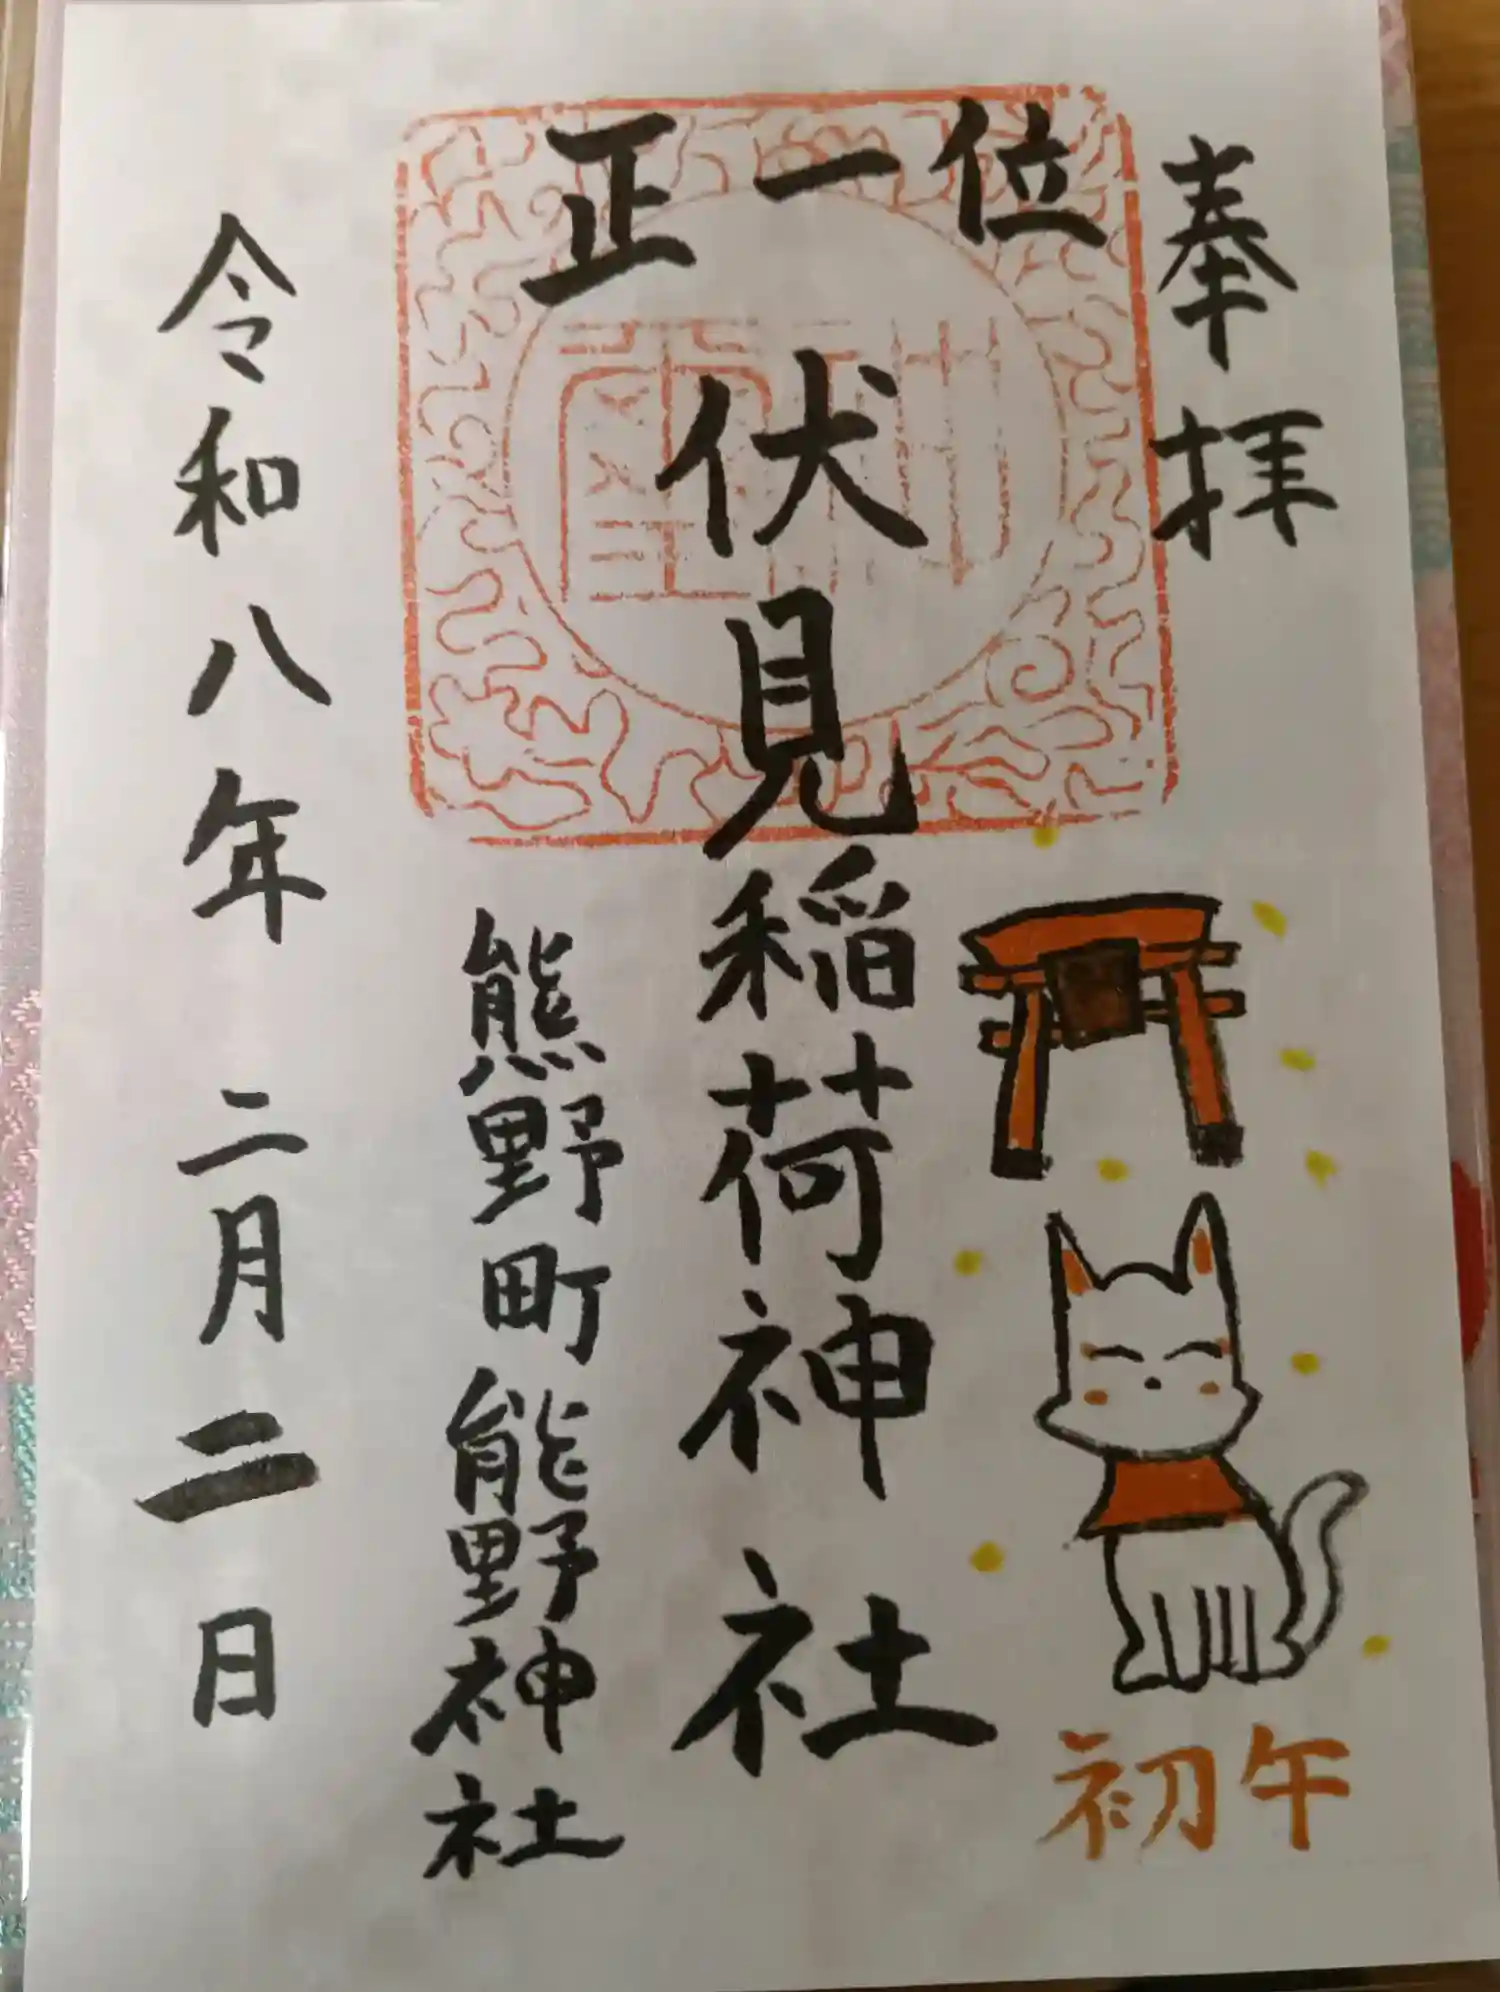 奉拝
正一位
伏見稲荷神社
初午
熊野町熊野神社
令和八年二月二日